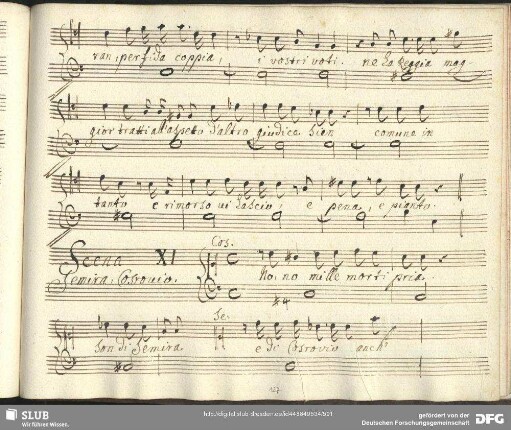 ran, perfida coppia, i vostri voti. ne la Reggia mag
gior tratti all'aspeto d'altro giudice sien comune in
tanto e rimorso vi lascio, e pena, e pianto.
Cos.
Scena XI
Semira, Cosrovio. No, no mille morti pria.
#4
Se.
Son di Semira e di Cosrovio anch'
127
SLUB
Wir führen Wissen.
gefördert von der
Deutschen Forschungsgemeinschaft
DFG